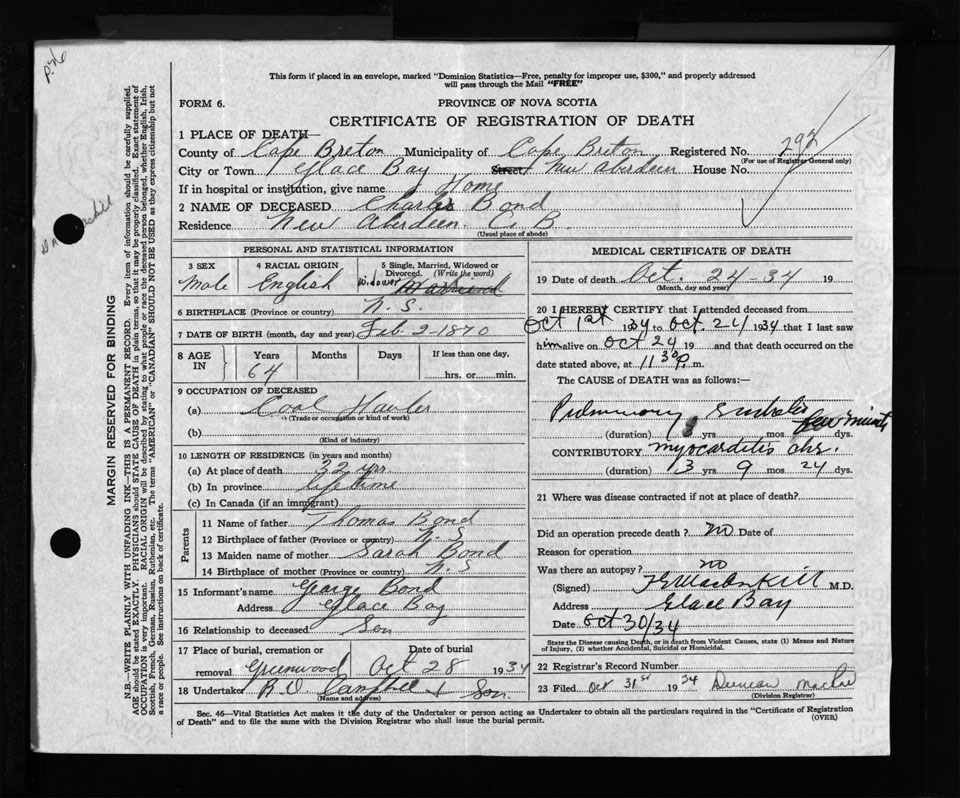 P. 46
This form if placed in an envelope, marked "Dominion Statistics—Free, penalty for improper use, $300," and properly addressed
will pass through the Mail "FREE"
FORM 6.
PROVINCE OF NOVA SCOTIA
CERTIFICATE OF REGISTRATION OF DEATH
1 PLACE OF DEATH—
County of Cape Breton Municipality of Cape Breton Registered No. 292
(For use of Registrar General only)
City or Town Glace Bay Street New Aberdeen House No.
If in hospital or institution, give name Home
2 NAME OF DECEASED Charles Bond
Residence New Aberdeen. C. B.
(Usual place of abode)
PERSONAL AND STATISTICAL INFORMATION
3 SEX Male
4 RACIAL ORIGIN English
5 Single, Married, Widowed or Divorced. (Write the word) widower Married
6 BIRTHPLACE (Province or country) N. S.
7 DATE OF BIRTH (month, day and year) Feb 2-1870
8 AGE IN Years 64 Months Days If less than one day. hrs. or min.
9 OCCUPATION OF DECEASED
(a) Coal
(Trade or occupation or kind of work)
(b)
(Kind of industry)
10 LENGTH OF RESIDENCE (in years and months)
(a) At place of death 32 yrs.
(b) In province lifetime
(c) In Canada (if an immigrant)
Parents
11 Name of father Thomas Bond
12 Birthplace of father (Province or country) N. S
13 Maiden name of mother Sarah Bond
14 Birthplace of mother (Province or country) N. S
15 Informant's name George Bond
Address Glace Bay
16 Relationship to deceased Son
17 Place of burial, cremation or removal Greenwood Date of burial Oct 28 1934
18 Undertaker R. O. Campbell & Son.
(Name and address)
MEDICAL CERTIFICATE OF DEATH
19 Date of death Oct. 24-34 19
(Month, day and year)
20 I HEREBY CERTIFY that I attended deceased from
Oct 1st 1934 to Oct. 24 1934 that I last saw
him alive on Oct 24 19 and that death occurred on the
date stated above, at 11 30 P. m.
The CAUSE of DEATH was as follows:—
Pulmonary few minutes
(duration) yrs mos. dys.
CONTRIBUTORY myocarditis chr.
(duration) 3 yrs 9 mos 24 dys.
21 Where was disease contracted if not at place of death?
Did an operation precede death? no Date of
Reason for operation
Was there an autopsy? no
(Signed) M.D.
Address Glace Bay
Date Oct 30/34
State the Disease causing Death, or in death from Violent Causes, state (1) Means and Nature
of Injury, (2) whether Accidental, Suicidal or Homicidal.
22 Registrar's Record Number
23 Filed Oct 31st 1934 Duncan
(Division Registrar)
Sec. 46—Vital Statistics Act makes it the duty of the Undertaker or person acting as Undertaker to obtain all the particulars required in the "Certificate of Registration
of Death" and to file the same with the Division Registrar who shall issue the burial permit. (OVER)
MARGIN RESERVED FOR BINDING
N.B.—WRITE PLAINLY WITH UNFADING INK—THIS IS A PERMANENT RECORD. Every item of information should be carefully supplied.
AGE should be stated EXACTLY. PHYSICIANS should STATE CAUSE OF DEATH in plain terms, so that it may be properly classified. Exact statement of
OCCUPATION is very important. RACIAL ORIGIN will be described by stating to what people or race the deceased person belonged, whether English, Irish,
Scottish, French, German, Russian, Ruthenian, etc. The terms "AMERICAN" or "CANADIAN" SHOULD NOT BE USED as they express citizenship but not
a race or people. See instructions on back of certificate.